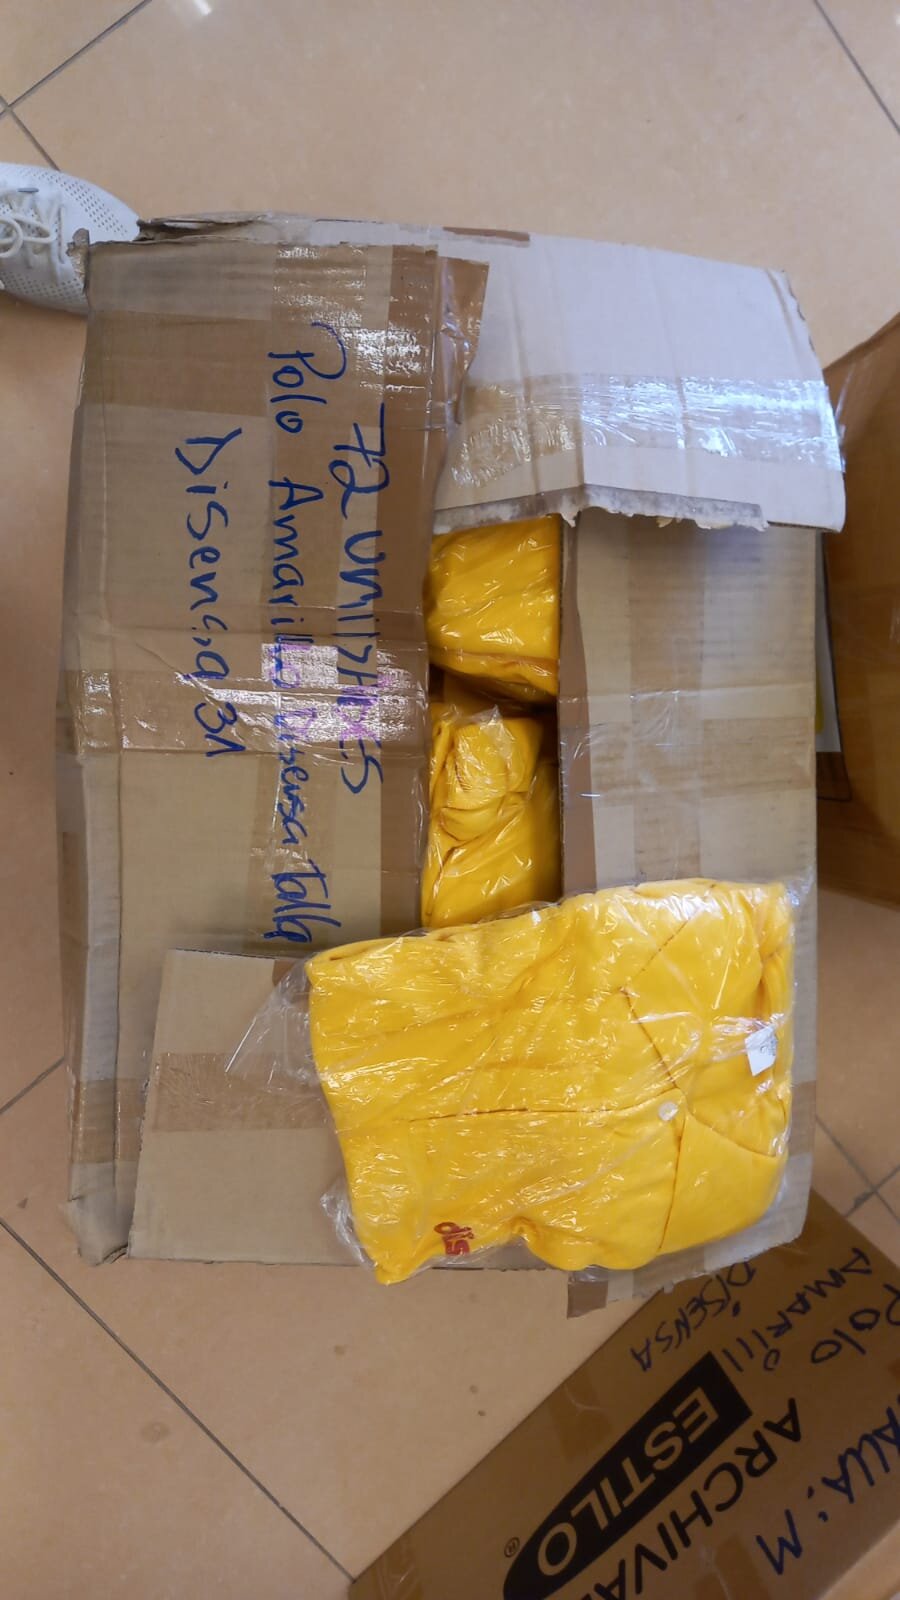 72 UNIDADES
Polo Amarillo Disensa Talla
Disensa
dis
Polo
AMARIllO
DISENSA
TALLA: M
ESTILO®